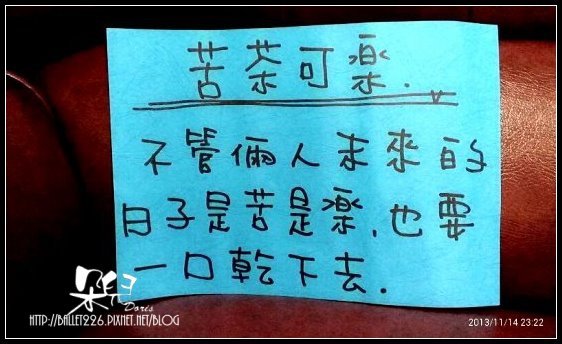 苦茶可樂.
不管倆人未來的
日子是苦是樂,也要
一口乾下去.
朵兒
Doris
HTTP://BALLET226.PIXNET.NET/BLOG
2013/11/14 23:22